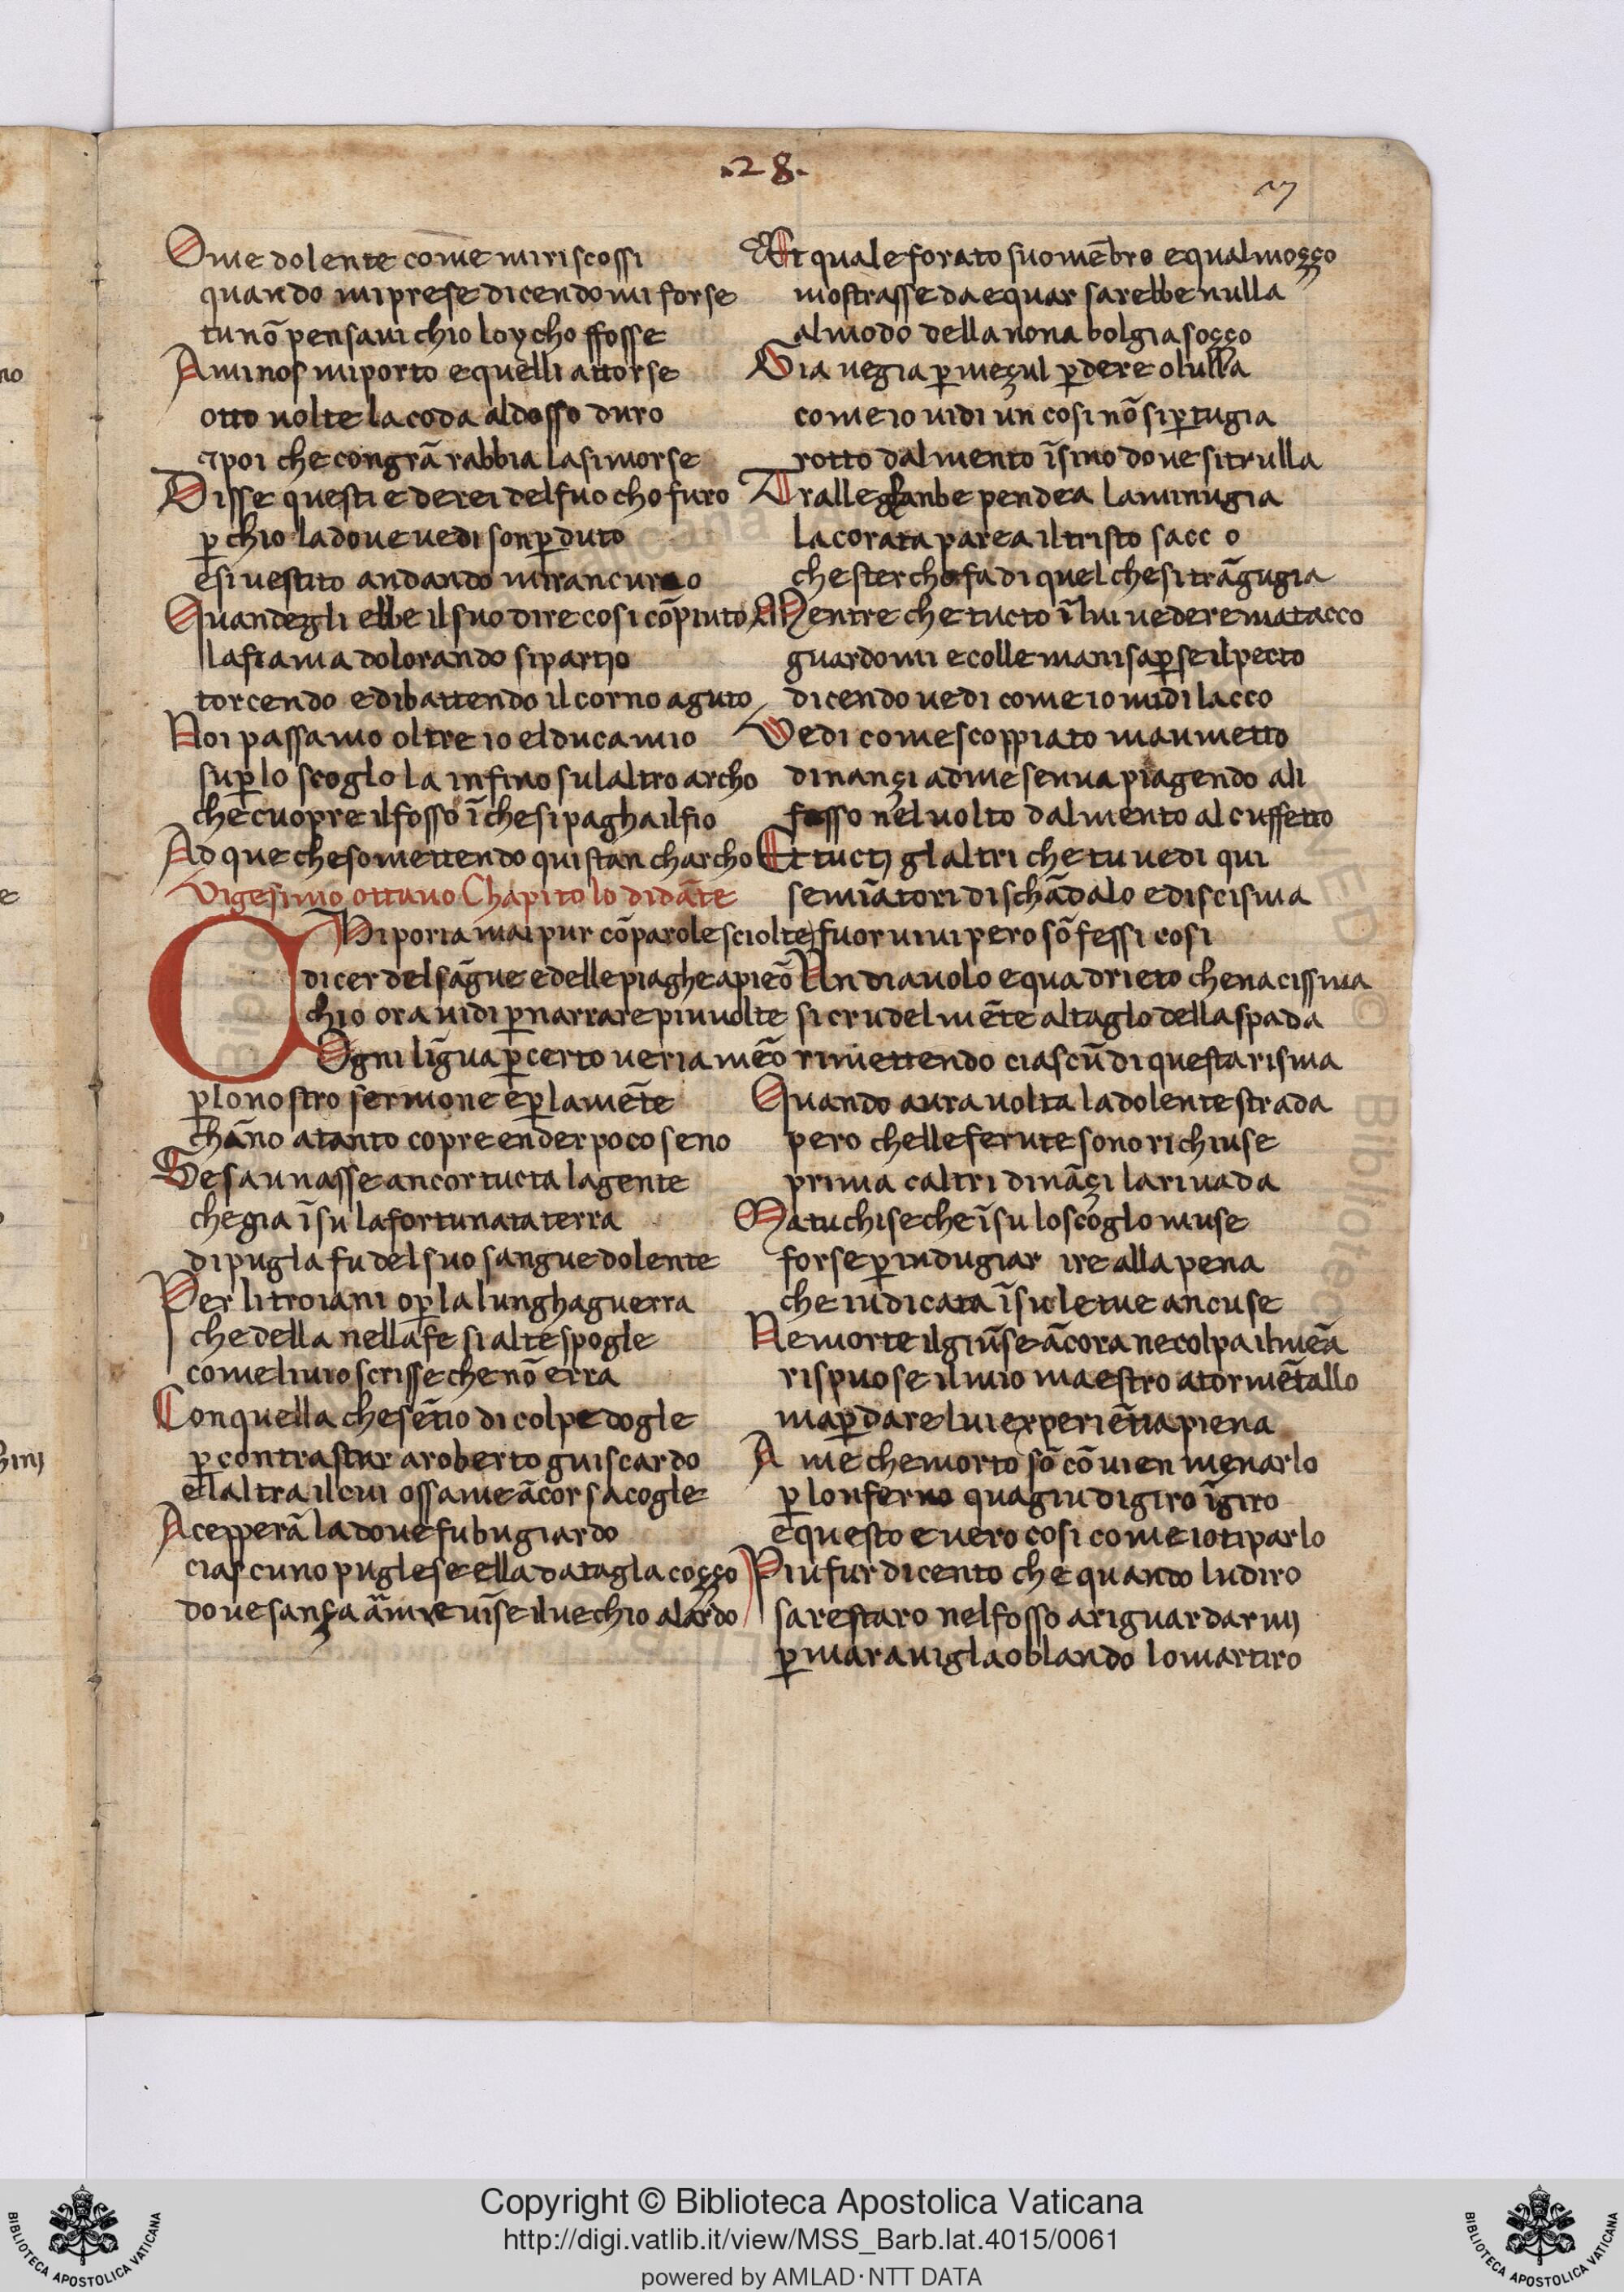 .28.
27
Ome dolente come mi riscossi
quando mi prese dicendomi forse
tu nō pensaui chio loycho ffosse
A minos mi porto e quelli attorse
otto uolte la coda al dosso duro
⁊ poi che con grā rabbia la si morse
Disse questi e de rei del fuocho furo
ꝑ chio la doue uedi son ꝑduto
e si uestito andando mi rancuro
Quandegli ebbe il suo dire cosi cōpiuto
la fiama dolorando si partio
torcendo e dibattendo il corno aguto
Noi passamo oltre io el duca mio
su ꝑ lo scoglo la infino sulaltro archo
che cuopre il fosso ī che si pagha il fio
Ad que che somettendo quistan charcho
Vigesimo ottauo Chapitolo di dāte
Chi poria mai pur cō parole sciolte
dicer del sāgue e delle piaghe apieō
chio ora uidi ꝑ narrare piu uolte
Ogni līgua ꝑ certo ueria mēo
ꝑ lo nostro sermone e ꝑ la mēte
chāno a tanto copreender poco seno
Se saunasse ancor tucta la gente
che gia ī su la fortunata terra
di pugla fu del suo sangue dolente
Per li troiani o ꝑ la lungha guerra
che della nella fe si alte spogle
come liuio scrisse che nō erra
Con quella che sētio di colpe dogle
ꝑ contrastar a roberto guiscardo
e laltra il cui ossame ācor sacogle
A cepperā la doue fu bugiardo
ciascuno puglese ella da taglacoçço
doue sança āme uīse il uechio alardo
Et quale forato suo mēbro e qual moçço
mostrasse da equar sarebbe nulla
al modo della nona bolgia soçço
Gia uegia ꝑ meçul ꝑdere o lulla
come io uidi un cosi nō si ꝑtugia
rotto dal mento īsino doue si trulla
Tralle ganbe pendea la minugia
la corata parea il tristo sacc o
che stercho fa di quel che si trāgugia
Mentre che tucto ī lui uedere matacco
guardomi e colle mani saꝑse il pecto
dicendo uedi come io midilacco
Vedi come scoppiato maumetto
dinançi ad me sen ua piagendo ali
fesso nel uolto dal mento al cuffetto
Et tuctj gl altri che tu uedi qui
semīatori di schādalo e di scisma
fuor uiui pero sō fessi cosi
Un diauolo e qua drieto che nacissma
si crudelmēte al taglo della spada
rimettendo ciascū di questa risma
Quando aura uolta la dolente strada
pero chelle ferute sono richiuse
prima caltri dināçi lariuada
Ma tu chi se che ī su lo scoglo muse
forse ꝑ indugiar ire alla pena
che iudicata ī su le tue ancuse
Ne morte il giūse ācora ne colpa il meā
rispuose il mio maestro a tormētallo
ma ꝑ dare lui experiētia piena
A me che morto sō cō uien menarlo
ꝑ lonferno quagiu di giro īgiro
e questo e uero cosi come io ti parlo
Piu fur di cento che quando ludiro
sarestaro nel fosso a riguardarmj
ꝑ marauigla oblando lo martiro
Copyright © Biblioteca Apostolica Vaticana
http://digi.vatlib.it/view/MSS_Barb.lat.4015/0061
powered by AMLAD·NTT DATA
BIBLIOTECA APOSTOLICA VATICANA
BIBLIOTECA APOSTOLICA VATICANA